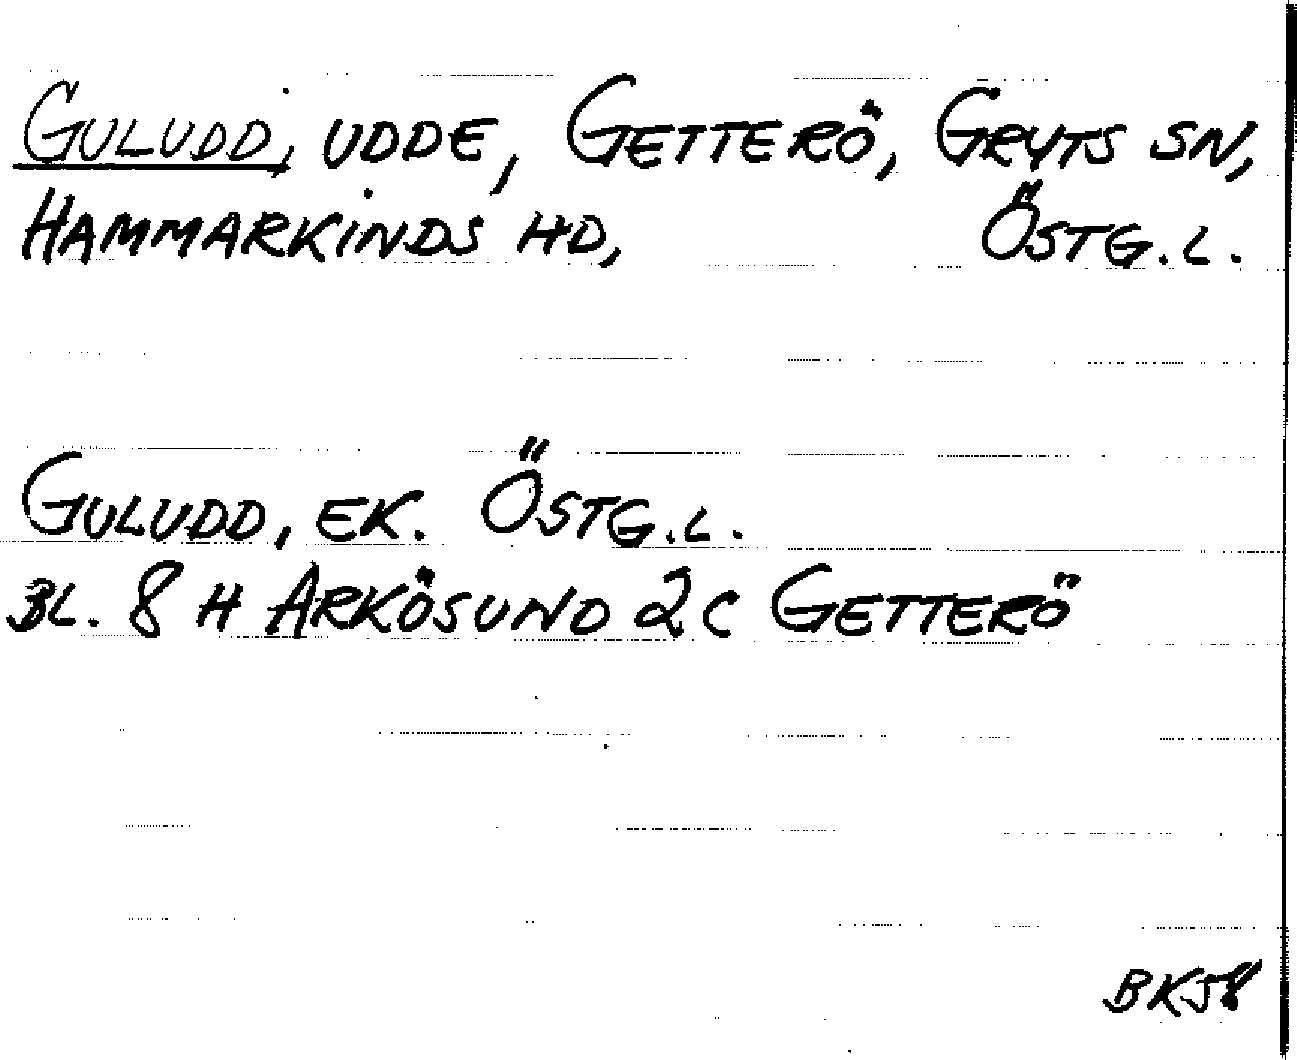 GULUDD, UDDE, GETTERÖ, GRYTS SN,
HAMMARKINDS HD, ÖSTG.L.
GULUDD, EK. ÖSTG.L.
BL. 8 H ARKÖSUND 2C GETTERÖ